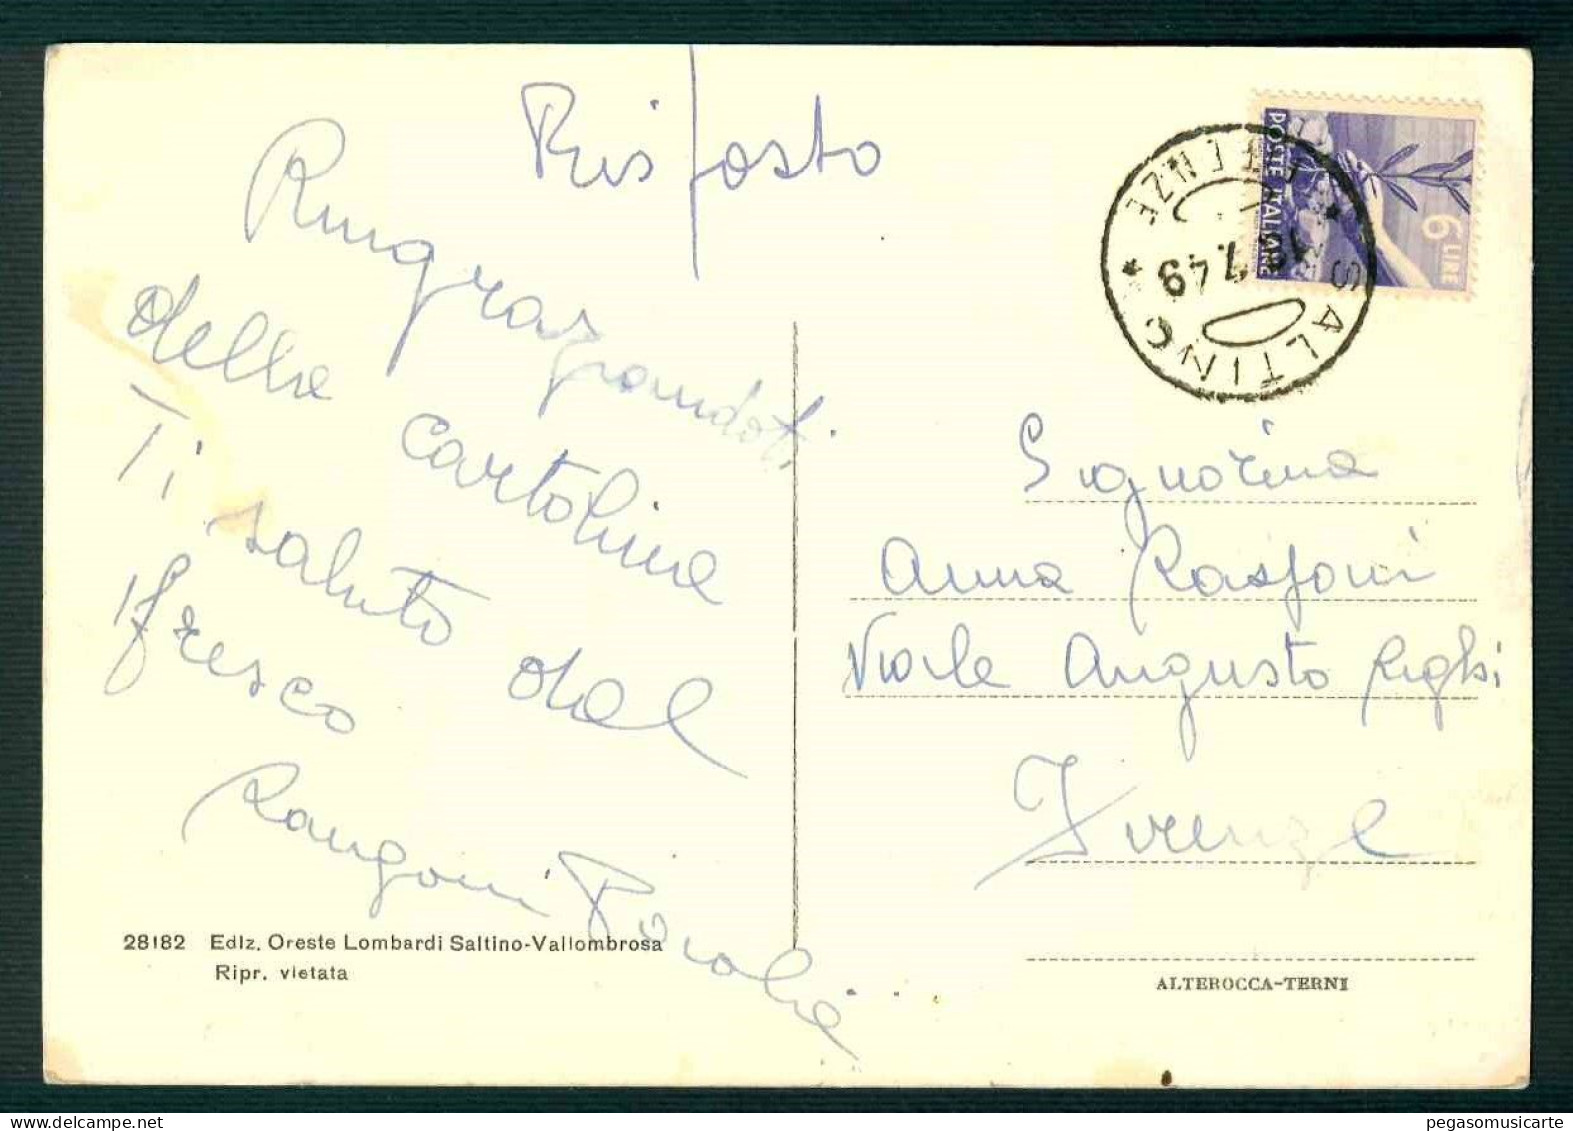 Risposto
Ringraziandoti
della cartolina
Ti saluto dal
fresco
Rangoni
28182 Ediz. Oreste Lombardi Saltino-Vallombrosa
Ripr. vietata
POSTE ITALIANE
6 LIRE
SALTINO
FIRENZE
7.49
Signorina
Anna
Viale Augusto Righi
Firenze
ALTEROCCA-TERNI
pegasomusicarte